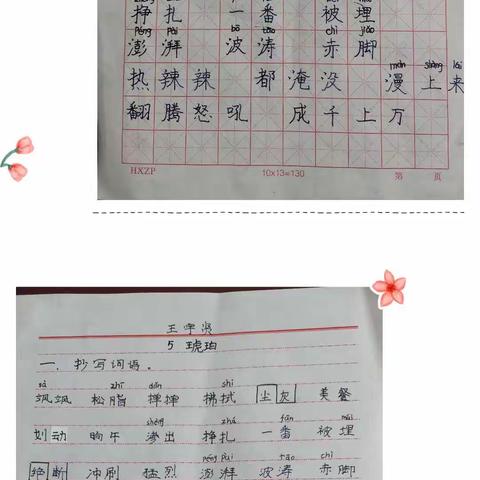 挣扎 一番 被埋
péng pài bō tāo chì jiǎo
澎湃 波涛 赤脚
màn shàng lái
热辣辣 都淹没 漫上来
翻腾怒吼 成千上万
HXZP 10x13=130 第 页
5 琥珀
一、抄写词语。
sà zhī dǎn shì
飒飒 松脂 掸掸 拂拭 尘灰 美餐
shèn zhá fān mái
划动 晌午 渗出 挣扎 一番 被埋
péng pài tāo chì
绝断 冲刷 猛烈 澎湃 波涛 赤脚